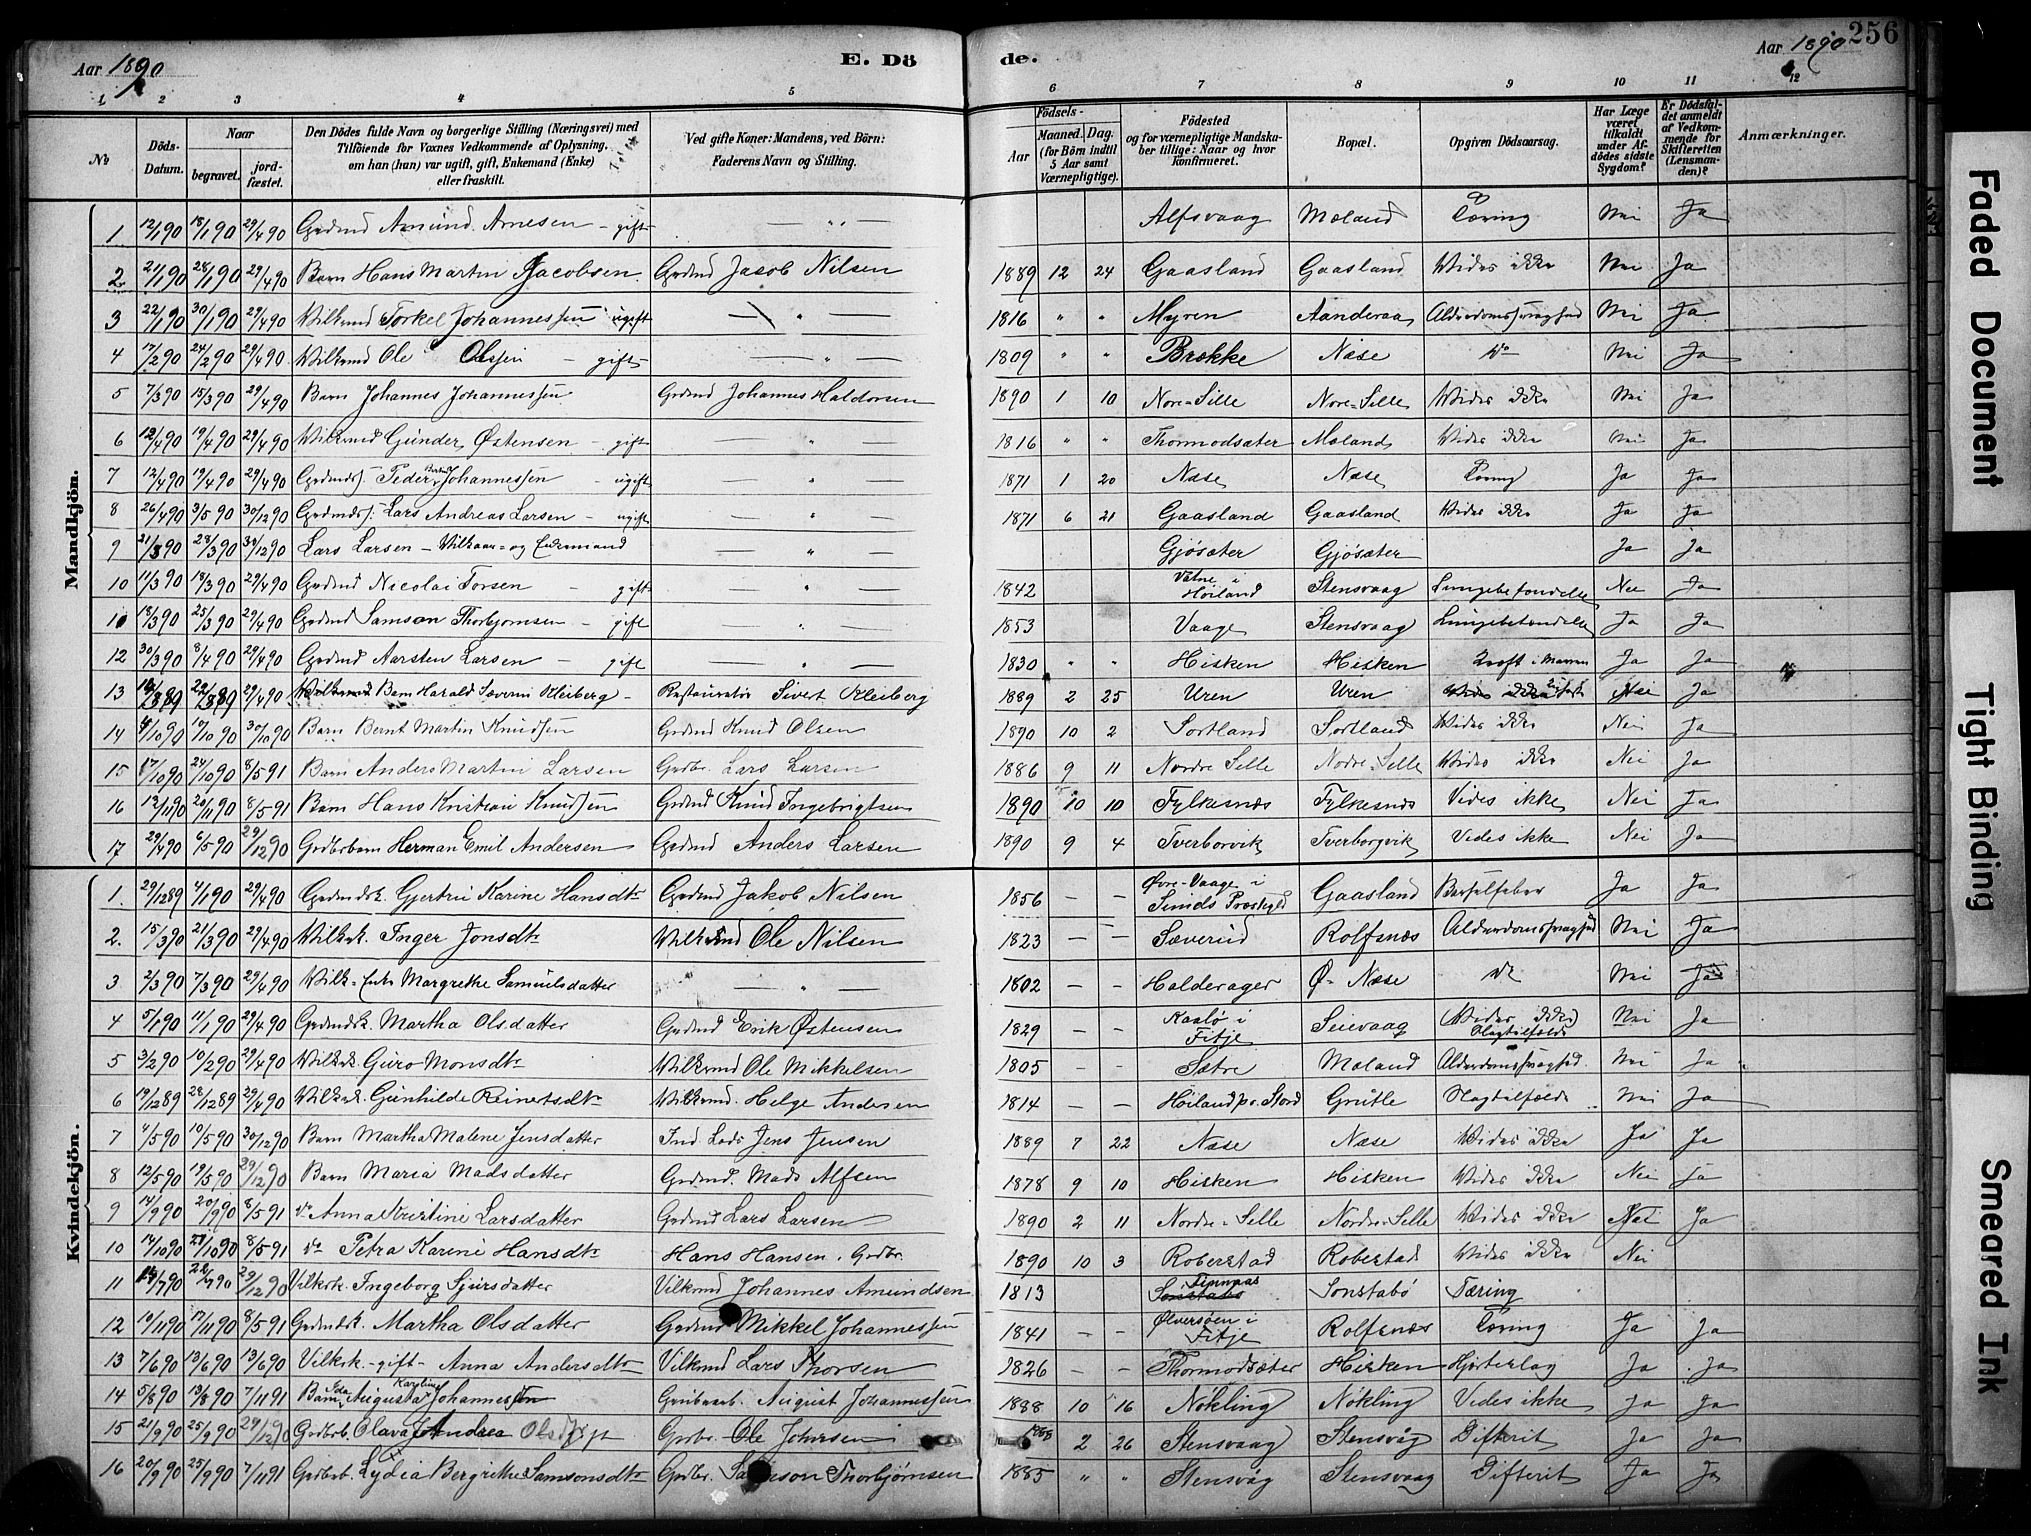 256
Aar 1890 E. Dö de. Aar 1890
1. 2 3 4 5 6 7 8 9 10 11 12
No Döds-Datum. Naar begravet. jordfæstet. Den Dödes fulde Navn og borgerlige Stilling (Næringsvei) med Tilföiende for Voxnes Vedkommende af Oplysning, om han (han) var ugift, gift, Enkemand (Enke) eller fraskilt. Ved gifte Koner: Mandens, ved Börn: Faderens Navn og Stilling. Födsels- Aar Maaned. Dag. (for Börn indtil 5 Aar samt Værnepligtige). Födested og for værnepligtige Mandskaber tillige: Naar og hvor Konfirmeret. Bopæl. Opgiven Dödsaarsag. Har Læge været tilkaldt under Afdödes sidste Sygdom? Er Dödsfaldet anmeldt af Vedkommende for Skifteretten (Lensmanden)? Anmærkninger.
Mandkjön.
1 12/1 90 18/1 90 29/4 90 Grdmd Amund Arnesen - gift — " — Alfsvaag Mæland Tæring Nei Ja
2 21/1 90 28/1 90 29/4 90 Barn Hans Martin Jacobsen Grdmd Jacob Nilsen 1889 12 24 Gaasland Gaasland Vides ikke Nei Ja
3 22/1 90 30/1 90 29/4 90 Vilkmd Torkel Johannessen ugift — " — 1816 " " Myren Aanderaa Alderdomssvaghed Nei Ja
4 17/2 90 24/2 90 29/4 90 Vilkmd Ole Olsen - gift — " — 1809 " " Brække Næse Do Nei Ja
5 7/3 90 15/3 90 29/4 90 Barn Johannes Johannessen Grdmd Johannes Haldorsen 1890 1 10 Nore-Selle Nore-Selle Vides ikke Nei Ja
6 12/4 90 19/4 90 29/4 90 Vilkmd Gunder Østensen - gift — " 1816 " " Thormodsæter Mæland Vides ikke Nei Ja
7 12/4 90 19/4 90 29/4 90 Grdmds. Peder Johannessen - ugift — " 1871 1 20 Næse Næse Tæring Ja Ja
8 26/4 90 3/5 90 30/12 90 Grdmds: Lars Andreas Larsen - ugift — " 1871 6 21 Gaasland Gaasland Vides ikke Ja Ja
9 21/3 90 28/3 90 30/12 90 Lars Larsen - Vilkaar- og Enkemand — " Gjøsæter Gjøsæter Ja Ja
10 11/3 90 18/3 90 29/4 90 Grdmd Nicolai Torsen gift — " — 1842 Vatne i Høiland Stensvaag Lungebetændelse Nei Ja
11 18/3 90 25/3 90 29/4 90 Grdmd Samson Thorbjørnsen - gift — " — 1853 Vaage Stensvaag Lungebetændelse Ja Ja
12 30/3 90 8/4 90 29/4 90 Grdmd Aarsten Larsen - gift — " — 1830 " " Hisken Hisken Kræft i Maven Ja Ja
13 22/3 89 29/4 90 Barn Harald Severin Kleiberg - Restauratør Sivert Kleiberg 1889 2 25 Uren Uren Nei Ja
14 8/10 90 17/10 90 30/10 90 Barn Bernt Martin Knudsen Grdmd Knud Olsen 1890 10 2 Sortland Sortland Vides ikke Nei Ja
15 17/10 90 24/10 90 8/5 91 Barn Anders Martin Larsen Grdbr. Lars Larsen 1886 9 11 Nordre Selle Nodre-Selle Vides ikke Nei Ja
16 12/11 90 20/11 90 8/5 91 Barn Hans Kristian Knudsen Grdmd Knud Ingebrigtsen 1890 10 10 Fylkesnæs Fylkesnæs Vides ikke Nei Ja
17 29/4 90 6/5 90 29/12 90 Grdbrbarn Herman Emil Andersen Grdmd Anders Larsen 1890 9 4 Tverborvik Tverborgvik Vides ikke Nei Ja
Kvindekjön.
1. 29/12 89 4/1 90 29/4 90 Grdmdsk. Gjertru Karine Hansdtr Grdmd Jakob Nilsen 1856 — — Øvre-Vaage i Sunds Præstgjd Gaasland Barselfeber Ja Ja
2. 15/3 90 21/3 90 29/4 90 Vilksk. Inger Jonsdtr Vilkmd Ole Nilsen 1823 — — Sæverud Rolfsnæs Alderdomssvaghed Nei Ja
3 2/3 90 7/3 90 29/4 90 Vilk-Enke Margrethe Samuelsdatter — " — 1802 — — Halderager Ø-Næse Do Nei Ja
4 5/1 90 11/1 90 29/4 90 Grdmdsk Martha Olsdatter Grdmd Erik Østensen 1829 — — Kaalø i Fitje Seievaag Vides ikke Slagtilfælde Nei Ja
5 3/2 90 10/2 90 29/4 90 Vilksk. Guro Monsdtr Vilkmd Ole Mikkelsen 1805 — — Sætre Mæland Alderdomssvaghed. Nei Ja
6 19/12 89 28/12 89 29/4 90 Vilksk. Gunhilde Reinertsdtr Vilkmd. Helge Andersen 1814 — — Høiland pr. Stord Grutle Slagtilfælde Nei Ja
7 4/5 90 10/5 90 30/12 90 Barn Martha Malene Jensdatter Ind. Lods Jens Jensen 1889 7 22 Næse Næse Vides ikke Ja Ja
8 12/5 90 19/5 90 29/12 90 Barn Maria Madsdatter Grdmd. Mads Alfsen 1878 9 10 Hisken Hisken Vides ikke Nei Ja
9 14/9 90 20/9 90 8/5 91 do Anna Kristine Larsdatter Grdmd Lars Larsen 1890 2 11 Nordre-Selle Nordre-Selle Vides ikke Nei Ja
10 14/10 90 21/10 90 8/5 91 do Petra Karine Hansdtr Hans Hansen. Grdbr. 1890 10 3 Roberstad Robestad Vides ikke Nei
11 22/7 90 29/12 90 Vilksk. Ingeborg Sjursdatter Vilkmd Johannes Amundsen 1813 Finnaas Sønstabø Sønstabø Tæring
12 10/11 90 17/11 90 8/5 91 Grdmdsk. Martha Olsdatter Grdmd Mikkel Johannessen 1841 — — Ølversøen i Fitje Rolfsnæs Tæring Ja Ja
13 7/6 90 13/6 90 13/6 90 Vilksk - gift - Anna Andersdtr Vilkmd Lars Thorsen 1826 — — Thormodsæter Hisken Hjerteslag Ja Ja
14 5/8 90 13/8 90 7/11 91 Barn Augusta Karoline Johannessen Grubearb. August Johannessen 1888 10 16 Nøkling Nøkling Vides ikke Ja Ja
15 21/9 90 25/9 90 29/12 90 Grdbrb. Olava Andrea Grbr. Ole Johnsen 2 26 Stensvaag Stensvåg Difterit Ja Ja
16 20/9 90 25/9 90 7/11 91 Grdbrb. Lydia Bergitte Samsonsdtr Grdbr. Samson Thorbjørnsen 1885 " " Stensvåg Stensvaag Difterit Ja Ja
Faded Document
Tight Binding
Smeared Ink